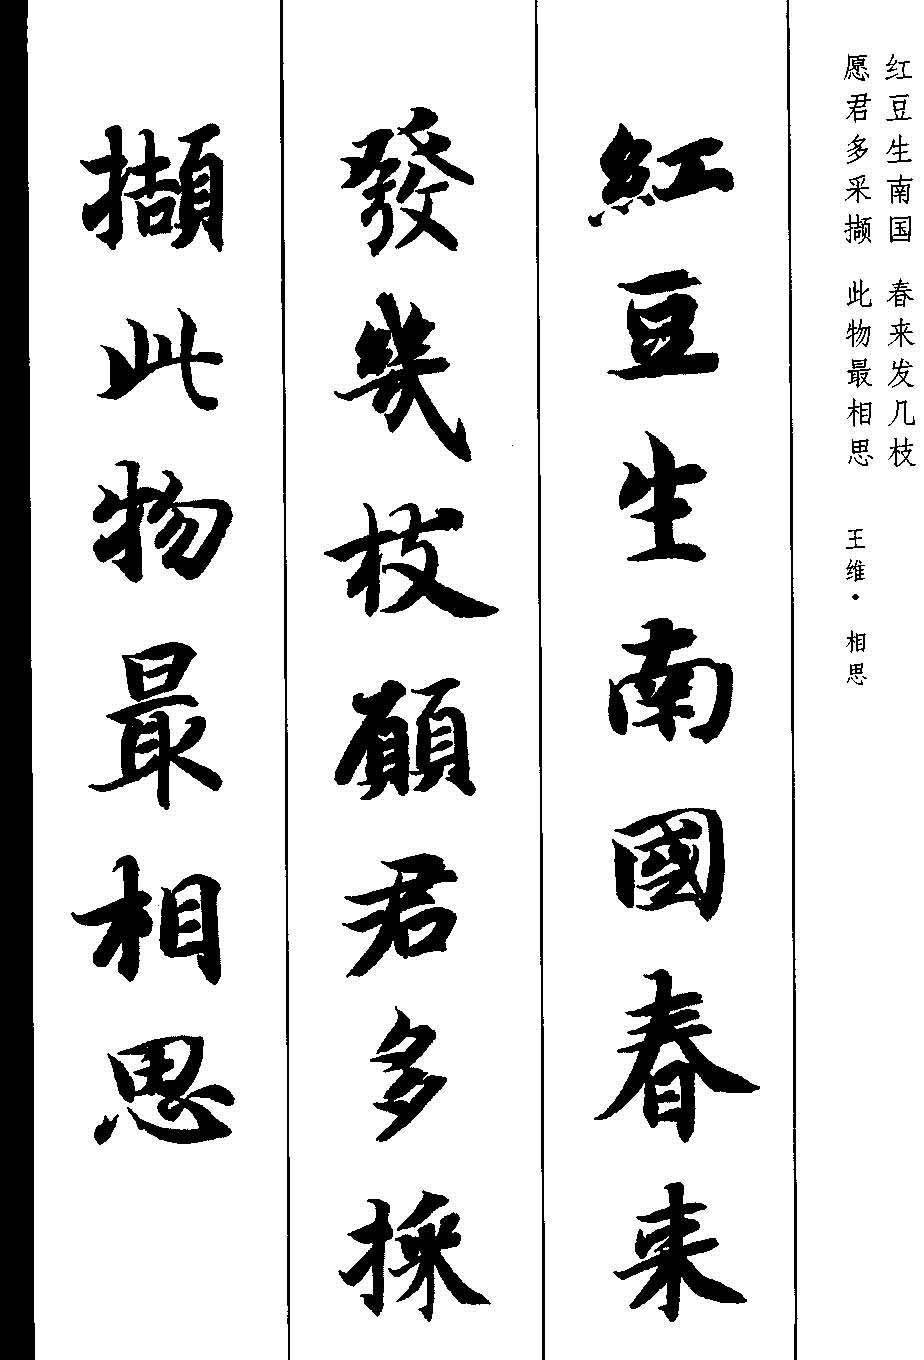 红豆生南国 春来发几枝
愿君多采撷 此物最相思
王维·相思
紅豆生南國春来
發幾枝願君多採
擷此物最相思